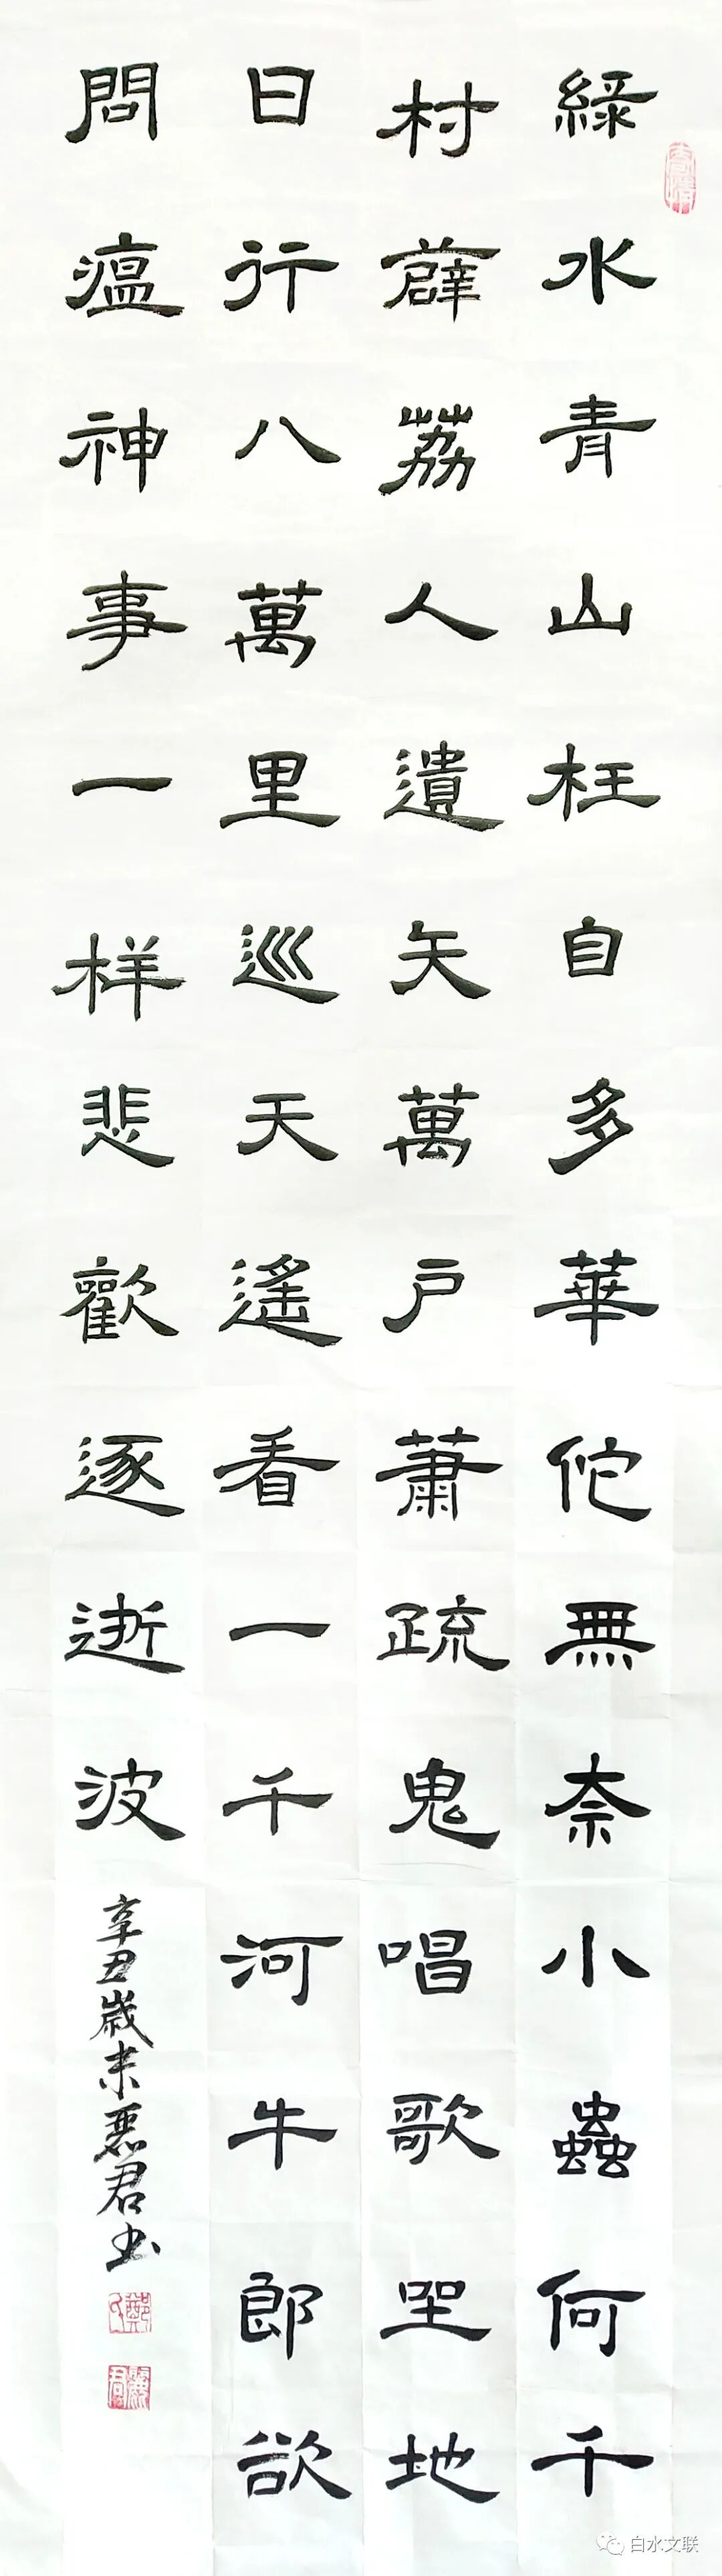 綠水青山枉自多華佗無奈小蟲何千
村薜荔人遺矢萬戶蕭疏鬼唱歌坐地
日行八萬里巡天遙看一千河牛郎欲
問瘟神事一样悲歡逐逝波
辛丑歲末麗君书
鄭氏
麗君
白水文联